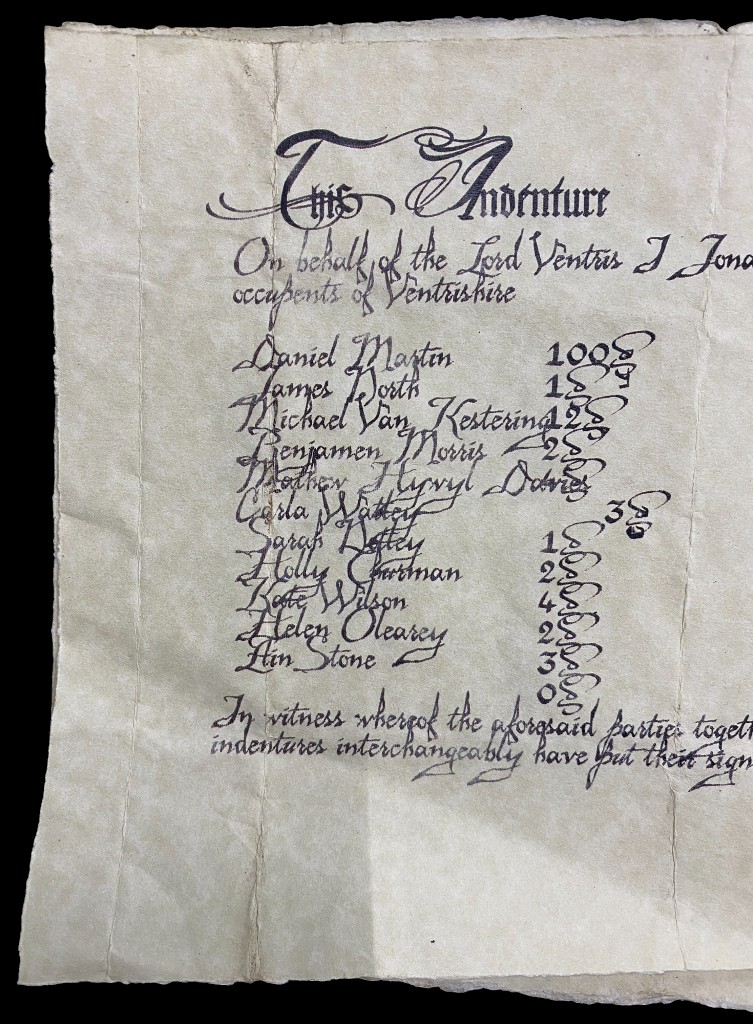 This Indenture
On behalf of the Lord Ventris I Jona
occupents of Ventrishire
Daniel Martin 100
James North 1
Michael Van Kestering 12
Benjamen Morris 2
Mathew Hywyl Davies
Carla Wattey 3
Sarah 1
Holly Churman 2
Kate Wilson 4
Helen Olearey 2
Stone 3
0
In witness whereof the aforesaid parties togeth
indentures interchangeably have put their sign